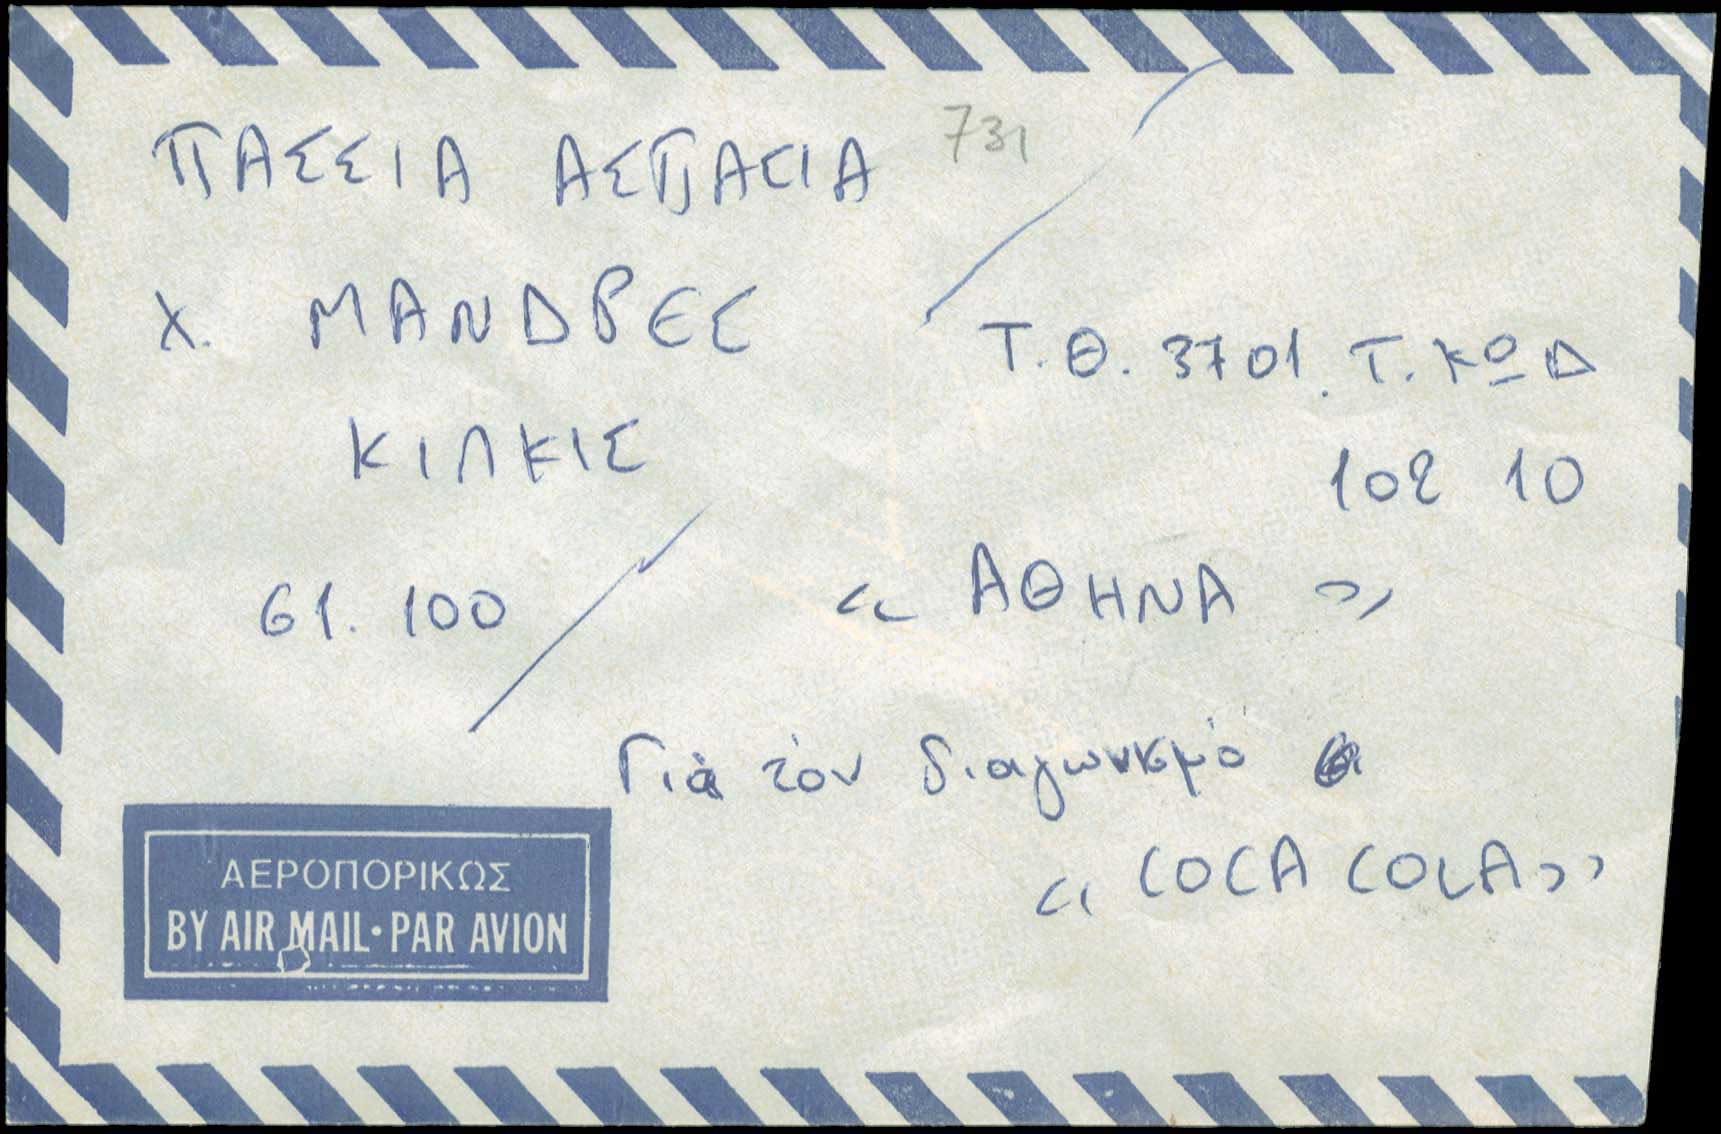 ΠΑΣΣΙΑ ΑΣΠΑΣΙΑ
731
Χ. ΜΑΝΔΡΕΣ
ΚΙΛΚΙΣ
61.100
Τ.Θ. 3701. Τ. ΚΩΔ
102 10
« ΑΘΗΝΑ »
Γιά τόν διαγωνισμό
« COCA COLA»
ΑΕΡΟΠΟΡΙΚΩΣ
BY AIR MAIL • PAR AVION